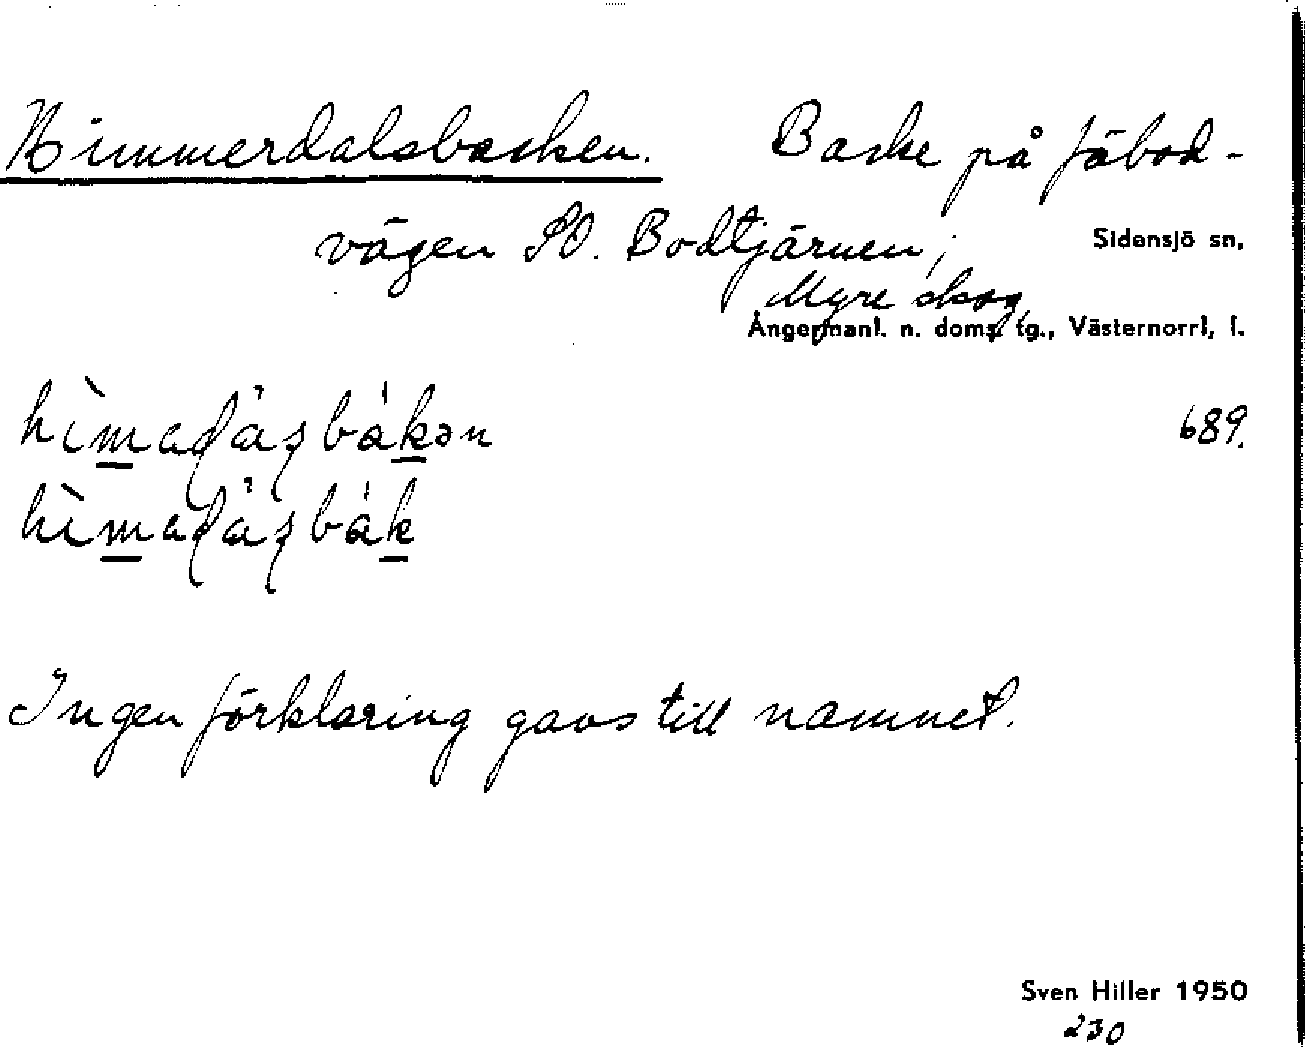 Himmerdalsbacken. Backe på fäbod-
vägen SO. Bodtjärnen,
Sidensjö sn,
Myre skog,
Ångermanl. n. doms. tg., Västernorrl, l.
689.
Ingen förklaring gavs till namnet.
Sven Hiller 1950
230